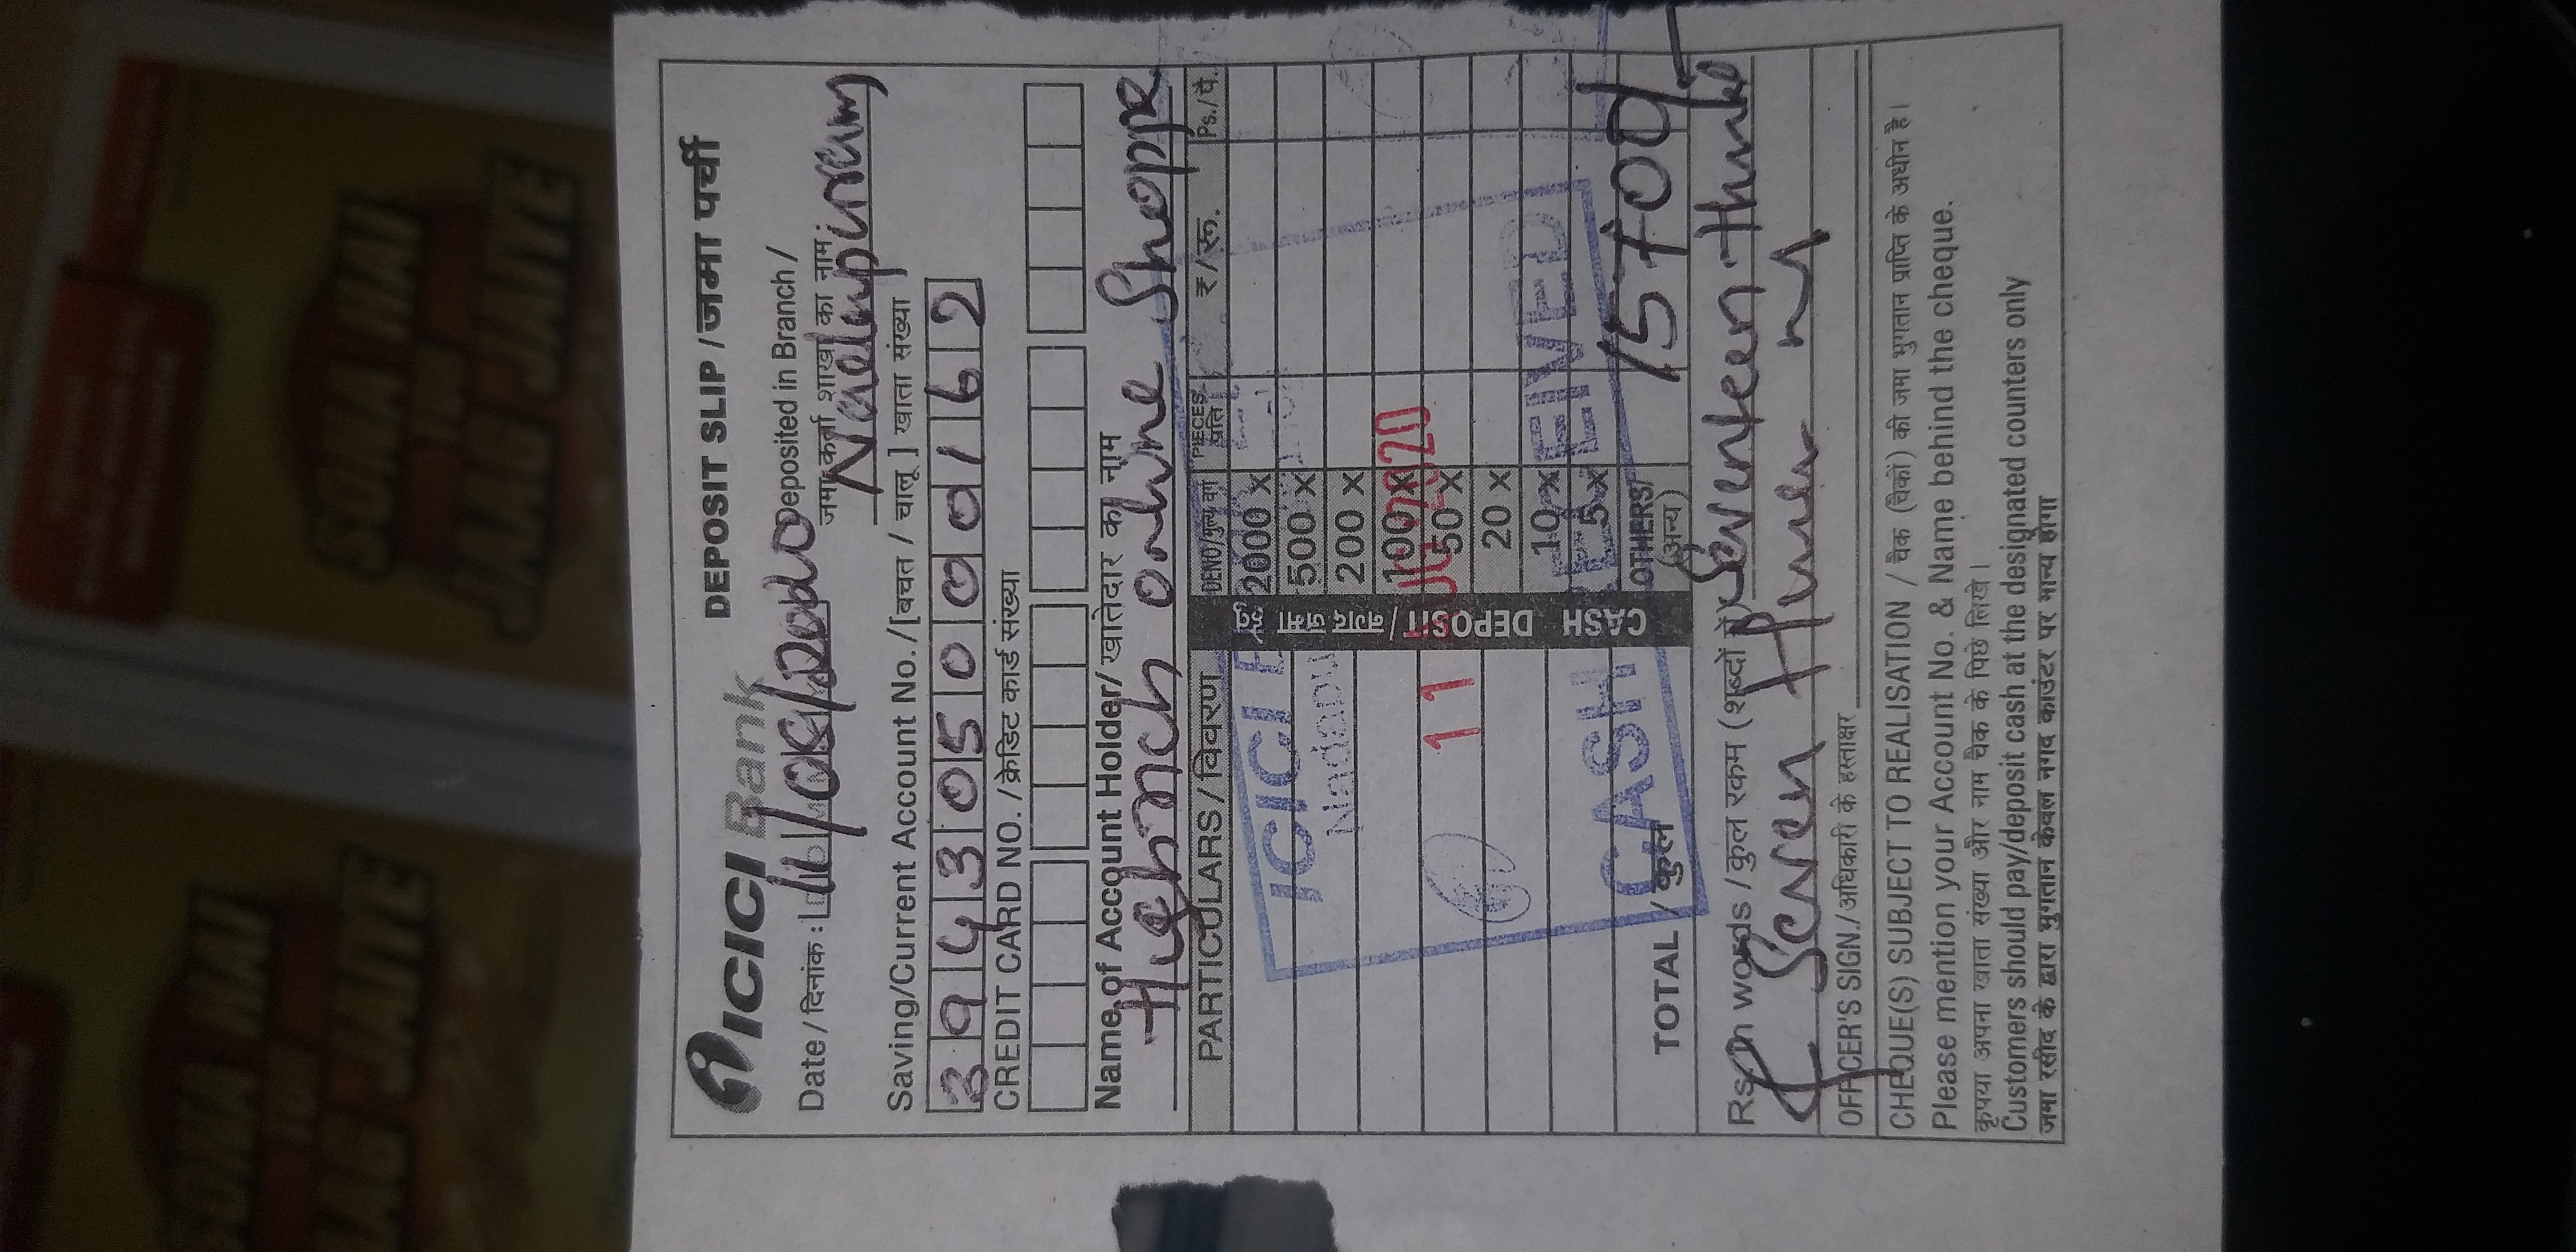 SONA HAI
TOH
JAAG JAIYE
SONA HAI
TOH
JAAG JAIYE
ICICI Bank
DEPOSIT SLIP / जमा पर्ची
Date / दिनांक : 11/08/2020
Deposited in Branch /
जमा कर्ता शाखा का नाम :
Nadapuram
Saving/Current Account No. /[बचत / चालू ] खाता संख्या
394305000162
CREDIT CARD NO. / क्रेडिट कार्ड संख्या
Name of Account Holder/ खातेदार का नाम
Highrich online Shoppe
PARTICULARS / विवरण
CASH DEPOSIT / नगद जमा हेतु
DENO/मुल्य वर्ग PIECES प्रति ₹ / रू. Ps./ पै.
2000 x
500 x
200 x
100 x
50 x
20 x
10 x
5 x
OTHERS/ (अन्य) 15700/-
TOTAL / कुल
ICICI
Nadapu
11 AUG 2020
CASH RECEIVED
Rs. in words / कुल रकम (शब्दों में) Seventeen
& Seven
OFFICER'S SIGN./ अधिकारी के हस्ताक्षर
CHEQUE(S) SUBJECT TO REALISATION / चैक (चैकों) की जमा भुगतान प्राप्ति के अधीन है।
Please mention your Account No. & Name behind the cheque.
कृपया अपना खाता संख्या और नाम चैक के पिछे लिखे।
Customers should pay/deposit cash at the designated counters only
जमा रसीद के द्वारा भुगतान केवल नगद काउंटर पर मान्य होगा